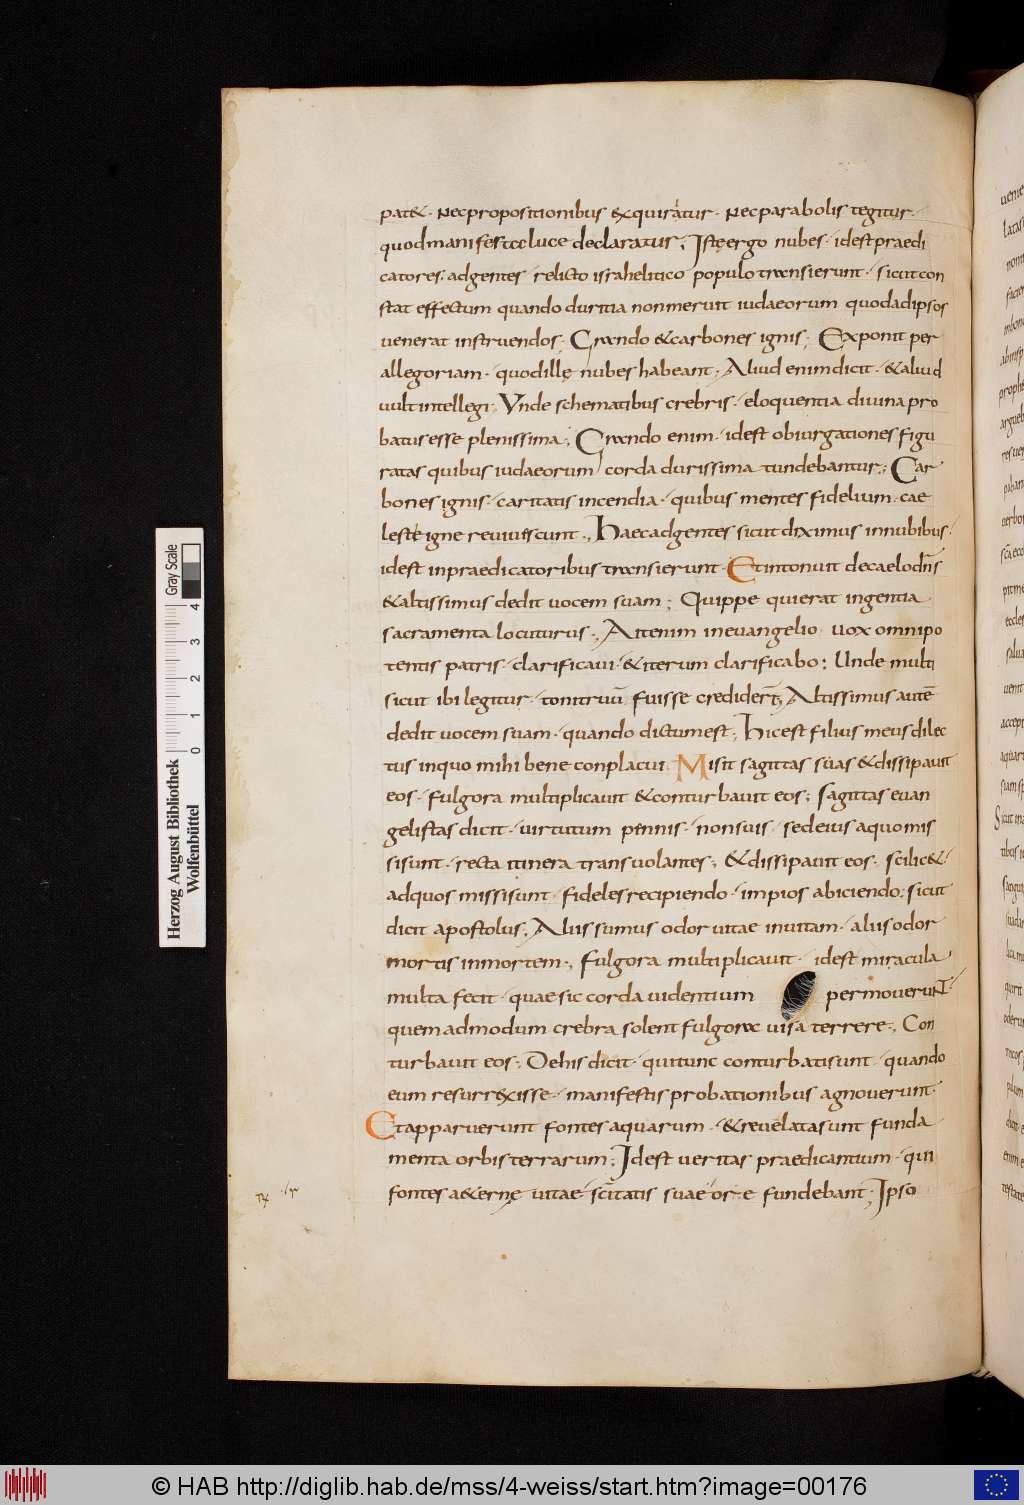 pat& · Nec propositionibus exquiratur · Nec parabolis tegitur ·
quod manifesta luce declaratur ; Iste ergo nubes · id est praedi
catores · ad gentes · relicto israhelitico populo transierunt · sicut con
stat effectum quando duritia non meruit iudaeorum quod ad ipsos
uenerat instruendos ; Grando & carbones ignis ; Exponit per
allegoriam · quod illę nubes habeant ; Aliud enim dicit · & aliud
uult intellegi · Vnde schematibus crebris · eloquentia diuina pro
batus esse plenissima ; Grando enim · id est obiurgationes figu
ratas quibus iudaeorum corda durissima tundebantur ; Car
bones ignis · caritatis incendia · quibus mentes fidelium · cae
leste igne reuiuiscunt ; Haec ad gentes sicut diximus in nubibus ·
id est in praedicatoribus transierunt · Et intonuit de caelo dn̄s
& altissimus dedit uocem suam ; Quippe qui erat ingentia
sacramenta locuturus ; Ait enim in euangelio uox omnipo
tentis patris · clarificaui · & iterum clarificabo ; Unde multi
sicut ibi legitur · tonitruū fuisse credider̄t ; Altissimus autē
dedit uocem suam · quando dictum est ; Hic est filius meus dilec
tus in quo mihi bene conplacui Misit sagittas suas & dissipauit
eos · fulgora multiplicauit & conturbauit eos ; Sagittas euan
gelistas dicit · uirtutum pennis · non suis · sed eius a quo mis
si sunt · recta itinera transuolantes ; & dissipauit eos ; scilic& ·
ad quos missi sunt · fideles recipiendo · impios abiciendo ; sicut
dicit apostolus ; Aliis sumus odor uitae in uitam · aliis odor
mortis in mortem ; fulgora multiplicauit · id est miracula
multa fecit · quae sic corda uidentium permouerunt ·
quemadmodum crebra solent fulgora uisa terrere ; Con
turbauit eos ; De his dicit · qui tunc conturbati sunt · quando
eum resurrexisse · manifestis probationibus agnouerunt ·
Et apparuerunt fontes aquarum · & reuelata sunt funda
menta orbis terrarum ; Id est ueritas praedicantium · qui
fontes a&ernę uitae sc̄itatis suae ore fundebant ; Ipso
Herzog August Bibliothek
Wolfenbüttel
Gray Scale
0 1 2 3 4
© HAB http://diglib.hab.de/mss/4-weiss/start.htm?image=00176